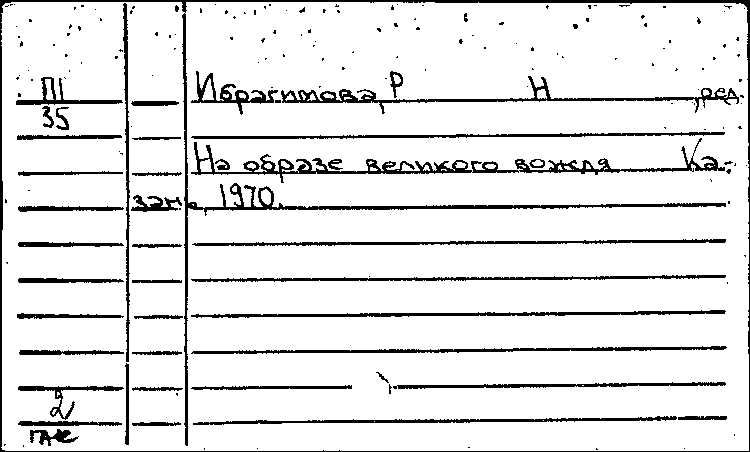 П1 Ибрагимова, Р Н , ред.
35
На образе великого вождя Ка-
зань, 1970.
2